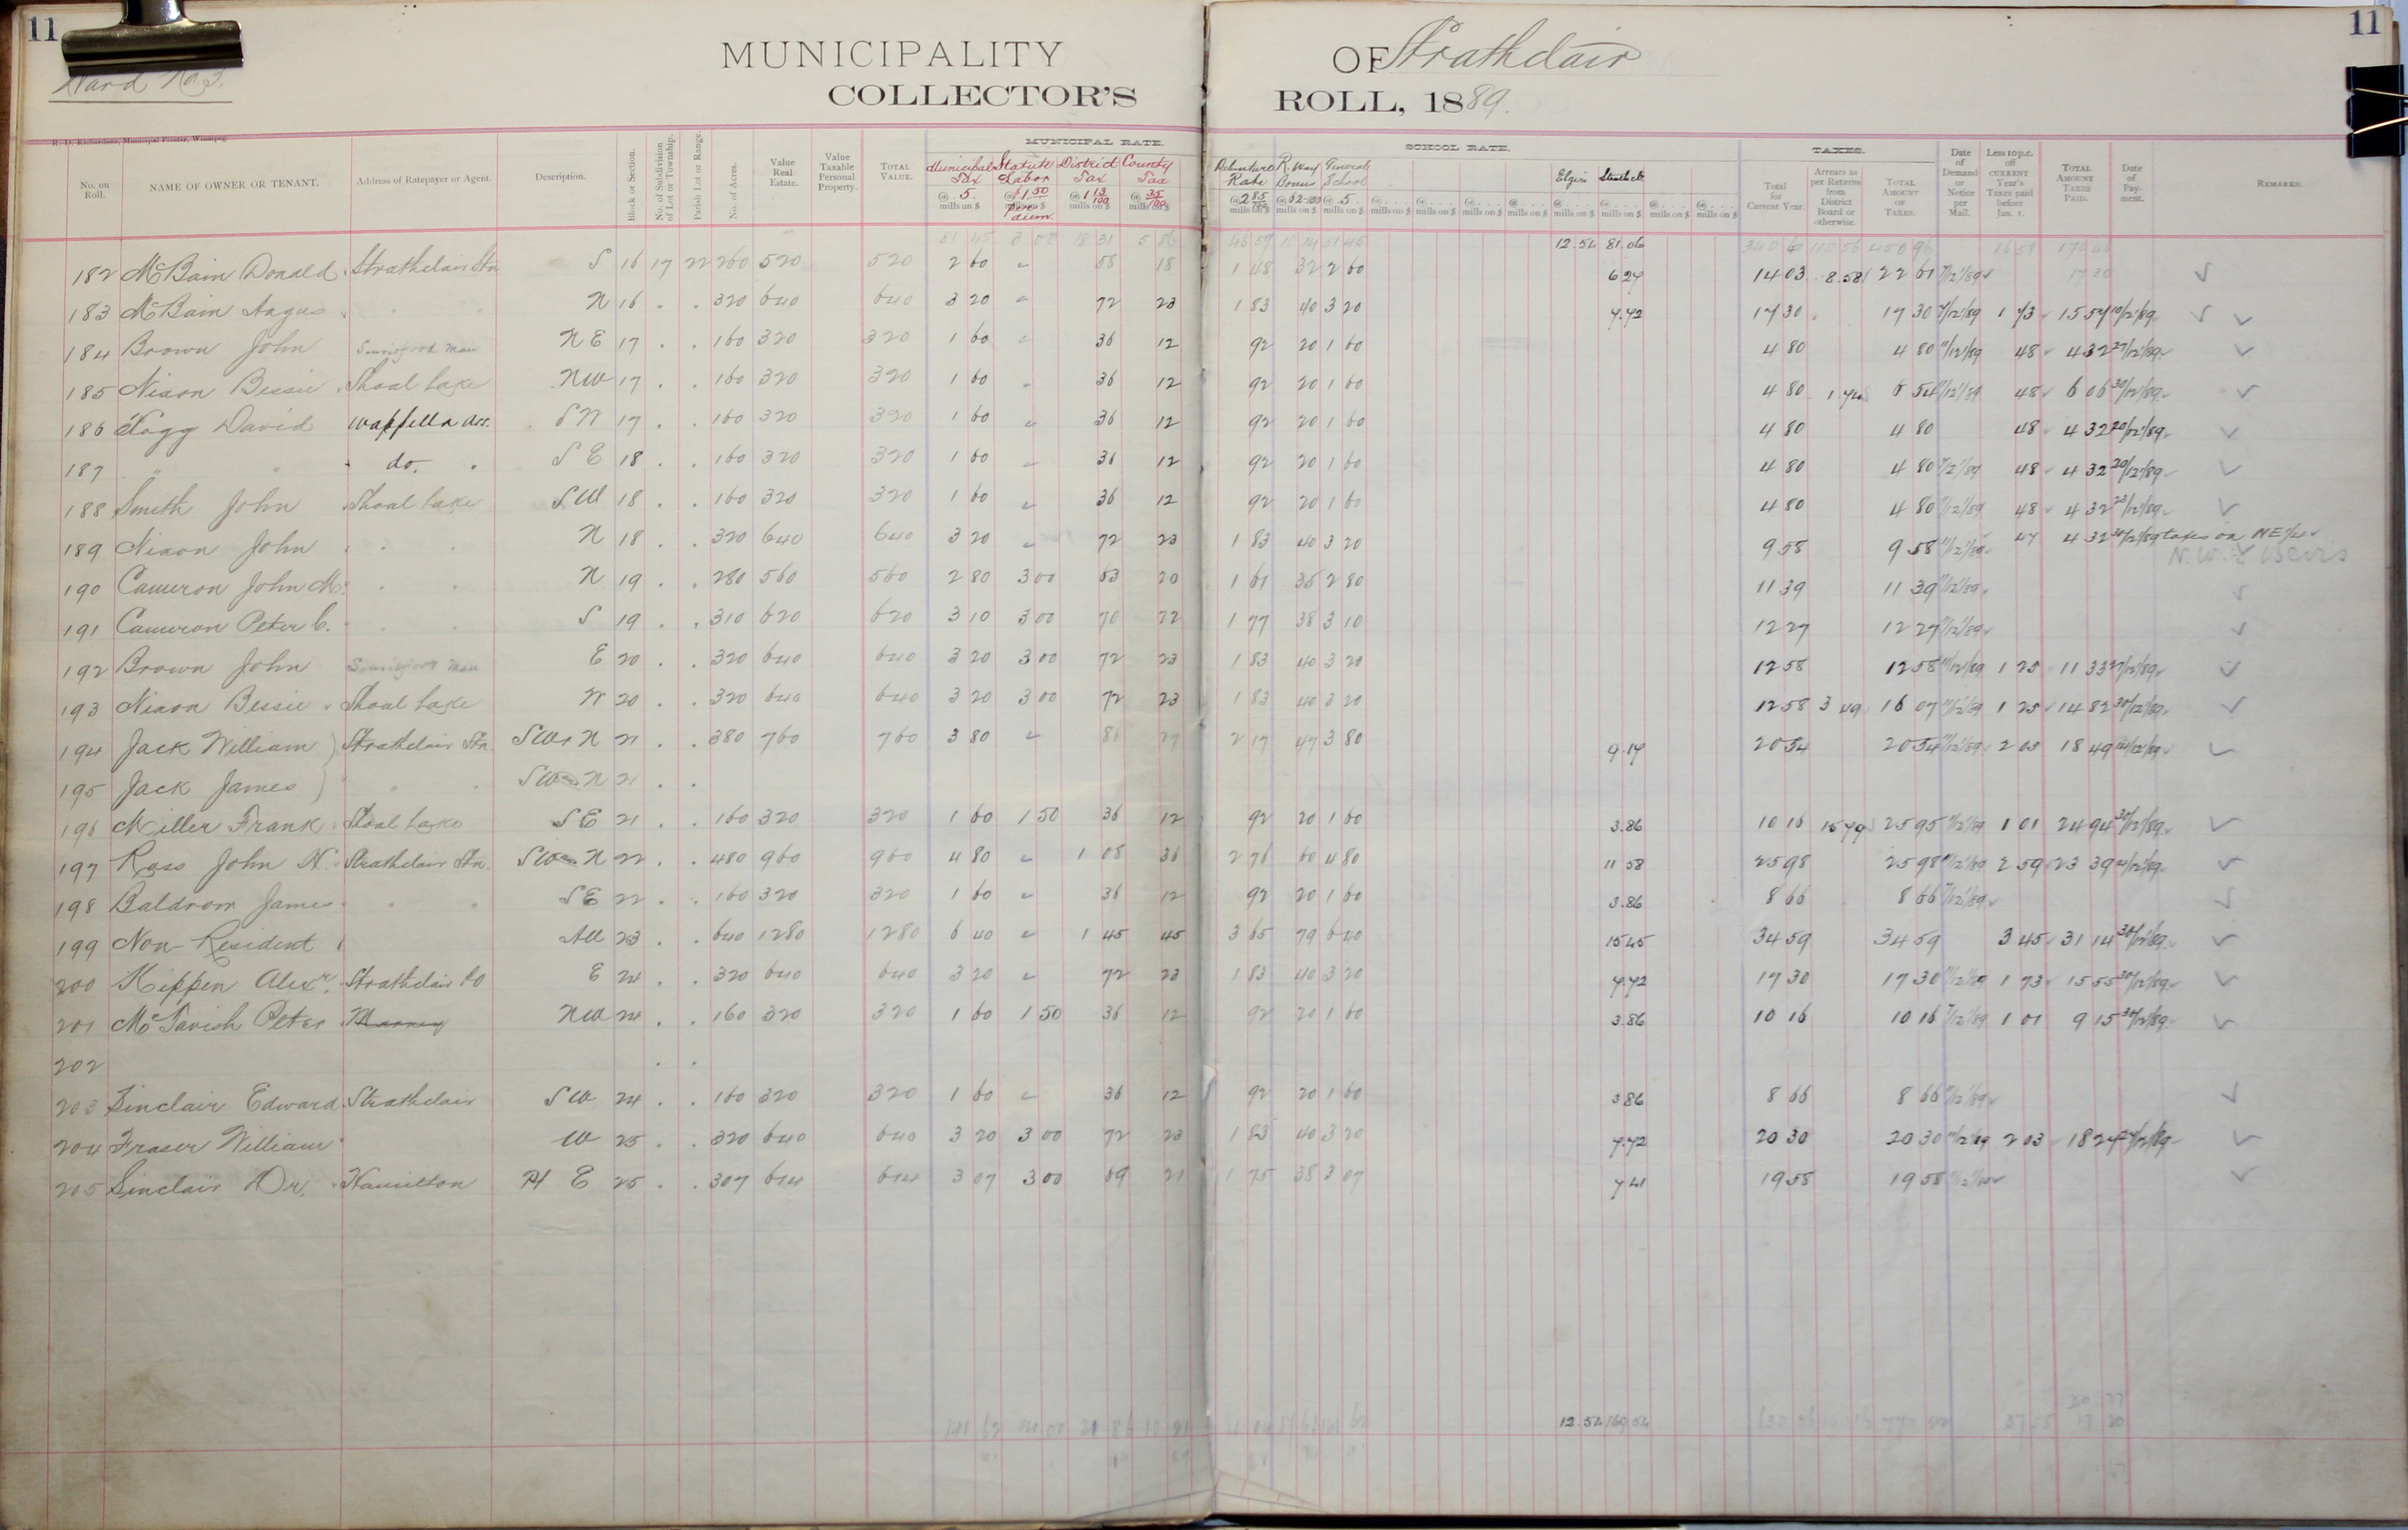 11 11
MUNICIPALITY OF Strathclair
Ward No. 3.
COLLECTOR'S ROLL, 1889.
R. D. Richardson, Municipal Printer, Winnipeg.
MUNICIPAL RATE. SCHOOL RATE. TAXES.
No. on Roll. NAME OF OWNER OR TENANT. Address of Ratepayer or Agent. Description. Block or Section. No. of Subdivision of Lot or Township. Parish Lot or Range. No. of Acres. Value Real Estate. Value Taxable Personal Property. TOTAL VALUE. Municipal Tax @ 5. mills on $ Statute Labor @ 1 50 per diem. District Tax @ 1 13/100 mills on $ County Tax @ 35/100 mills on $ Debenture Rate @ 2 85/100 mills on $ R. Way Bonus @ 62/100 mills on $ General School @ 5 mills on $ Elgin mills on $ Strathclr mills on $ Total for Current Year. Arrears as per Returns from District Board or otherwise. TOTAL AMOUNT OF TAXES. Date of Demand or Notice per Mail. Less 10 p.c. off CURRENT Year's Taxes paid before Jan. 1. TOTAL AMOUNT TAXES PAID. Date of Payment. REMARKS.
12.54 81.06
182 McBain Donald Strathclair Stn S 16 17 22 260 520 520 2 60 " 58 18 1 48 32 2 60 6.27 14 03 8.58 22 61 11/12/89
183 McBain Angus " " N 16 . . 320 640 640 3 20 " 72 23 1 83 40 3 20 7.72 17 30 17 30 11/12/89 1 73 15 57 10/12/89
184 Brown John NE 17 . . 160 320 320 1 60 " 36 12 92 20 1 60 4 80 4 80 11/12/89 48 4 32 27/12/89
185 Nixon Bessie Shoal Lake NW 17 . . 160 320 320 1 60 " 36 12 92 20 1 60 4 80 1.74 6 54 11/12/89 48 6 06 30/12/89
186 Togg David Wapella Ass. 17 . . 160 320 320 1 60 " 36 12 92 20 1 60 4 80 4 80 48 4 32 20/12/89
187 " " do. SE 18 . . 160 320 320 1 60 " 36 12 92 20 1 60 4 80 4 80 11/12/89 48 4 32 20/12/89
188 Smith John Shoal Lake SW 18 . . 160 320 320 1 60 " 36 12 92 20 1 60 4 80 4 80 11/12/89 48 4 32 23/12/89
189 Nixon John " " N 18 . . 320 640 640 3 20 " 72 23 1 83 40 3 20 9 58 9 58 11/12/89 47 4 32 30/12/89 taxes on NE 1/4
190 Cameron John M. " " N 19 . . 280 560 560 2 80 3 00 63 20 1 61 35 2 80 11 39 11 39 11/12/89
191 Cameron Peter C. " " S 19 . . 310 620 620 3 10 3 00 70 22 1 77 38 3 10 12 27 12 27 11/12/89
192 Brown John E 20 . . 320 640 640 3 20 3 00 72 23 1 83 40 3 20 12 58 12 58 11/12/89 1 25 11 33 27/12/89
193 Nixon Bessie Shoal Lake W 20 . . 320 640 640 3 20 3 00 72 23 1 83 40 3 20 12 58 3 49 16 07 11/12/89 1 25 14 82 30/12/89
194 Jack William ) Strathclair Stn. SW & N 21 . . 380 760 760 3 80 " 86 27 2 17 47 3 80 9.17 20 54 20 54 11/12/89 2 05 18 49 14/12/89
195 Jack James ) " " SW & N 21 . .
196 Miller Frank Shoal Lake SE 21 . . 160 320 320 1 60 1 50 36 12 92 20 1 60 3.86 10 16 15 79 25 95 11/12/89 1 01 24 94 30/12/89
197 Ross John H. Strathclair Stn. SW & N 22 . . 480 960 960 4 80 " 1 08 36 2 76 60 4 80 11 58 25 98 25 98 11/12/89 2 59 23 39 14/12/89
198 Baldrom James " " SE 22 . . 160 320 320 1 60 " 36 12 92 20 1 60 3.86 8 66 8 66 11/12/89
199 Non-Resident All 23 . . 640 1280 1280 6 40 " 1 45 45 3 65 79 6 40 15 45 34 59 34 59 3 45 31 14 30/12/89
200 Kippen Alexr. Strathclair PO E 24 . . 320 640 640 3 20 " 72 23 1 83 40 3 20 7.72 17 30 17 30 11/12/89 1 73 15 55 30/12/89
201 McTavish Peter NW 24 . . 160 320 320 1 60 1 50 36 12 92 20 1 60 3.86 10 16 10 16 11/12/89 1 01 9 15 30/12/89
202 . .
203 Sinclair Edward Strathclair SW 24 . . 160 320 320 1 60 " 36 12 92 20 1 60 3 86 8 66 8 66 11/12/89
204 Fraser William " W 25 . . 320 640 640 3 20 3 00 72 23 1 83 40 3 20 7.72 20 30 20 30 11/12/89 2 03 18 27 27/12/89
205 Sinclair Dr. Hamilton Pt E 25 . . 307 614 614 3 07 3 00 69 21 1 75 38 3 07 7 41 19 58 19 58
12.54 169 54